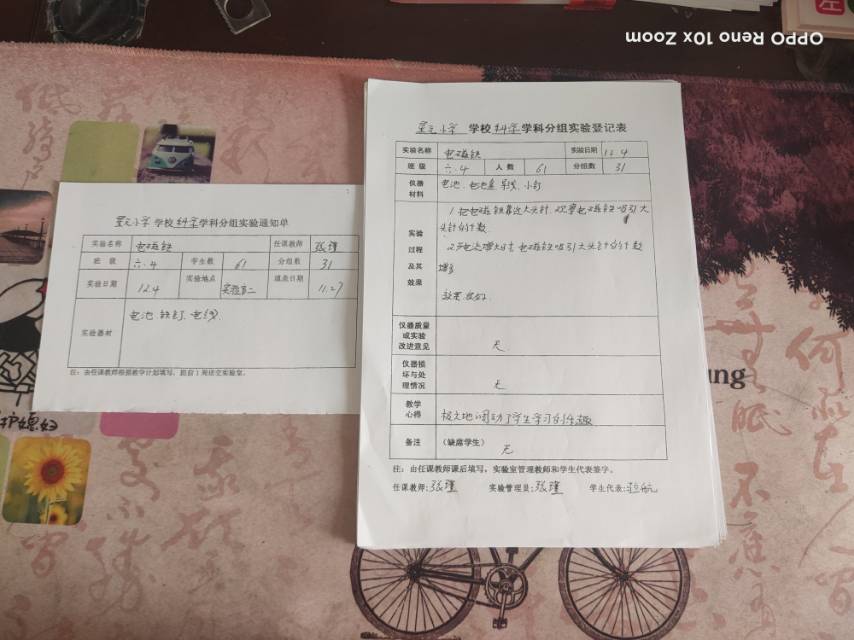 OPPO Reno 10x Zoom
学校 科学 学科分组实验通知单
实验名称 电磁铁 任课教师 张瑾
班 级 六.4 学生数 61 分组数 31
实验日期 12.4 实验地点 实验室二 填表日期 11.27
实验器材 电池 铁钉、电线
注：由任课教师根据教学计划填写，提前1周送交实验室。
小学 学校 科学 学科分组实验登记表
实验名称 电磁铁 实验日期 12.4
班 级 六.4 人 数 61 分组数 31
仪器材料 电池、电池盒、导线、小钉
实验过程及其效果
1.把电磁铁靠近大头针,观察电磁铁吸引大
头针的个数.
2.电池增大时,电磁铁吸引大头针的个数
增多
效果:良好.
仪器质量或实验改进意见 无
仪器损坏与处理情况 无
教学心得 极大地调动了学生学习的乐趣
备注 （缺席学生） 无
注：由任课教师课后填写，实验室管理教师和学生代表签字。
任课教师:张瑾 实验管理员:张瑾 学生代表:
护媳妇
ung